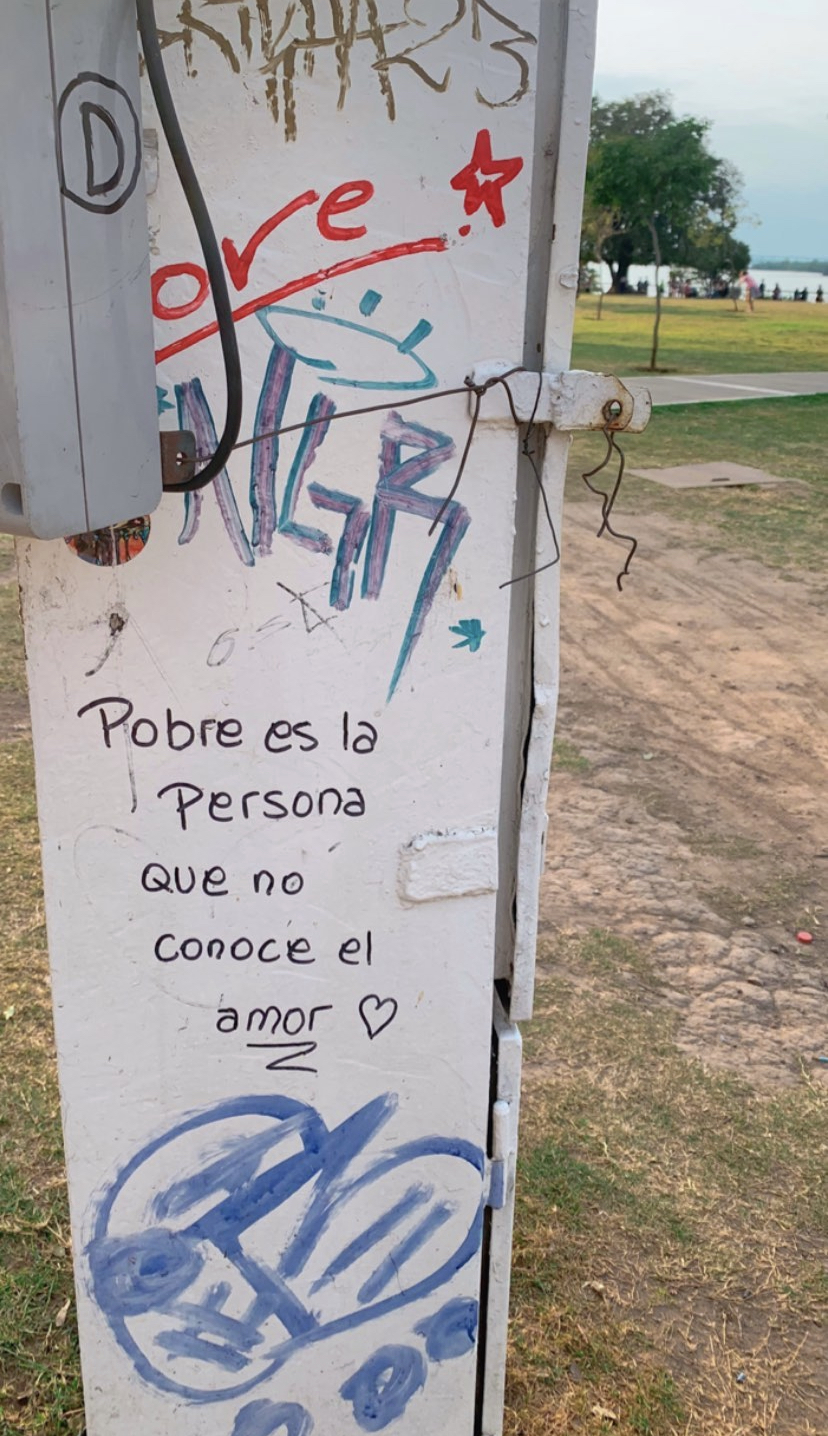 D
ove
NGR
Pobre es la
Persona
que no
conoce el
amor ♡